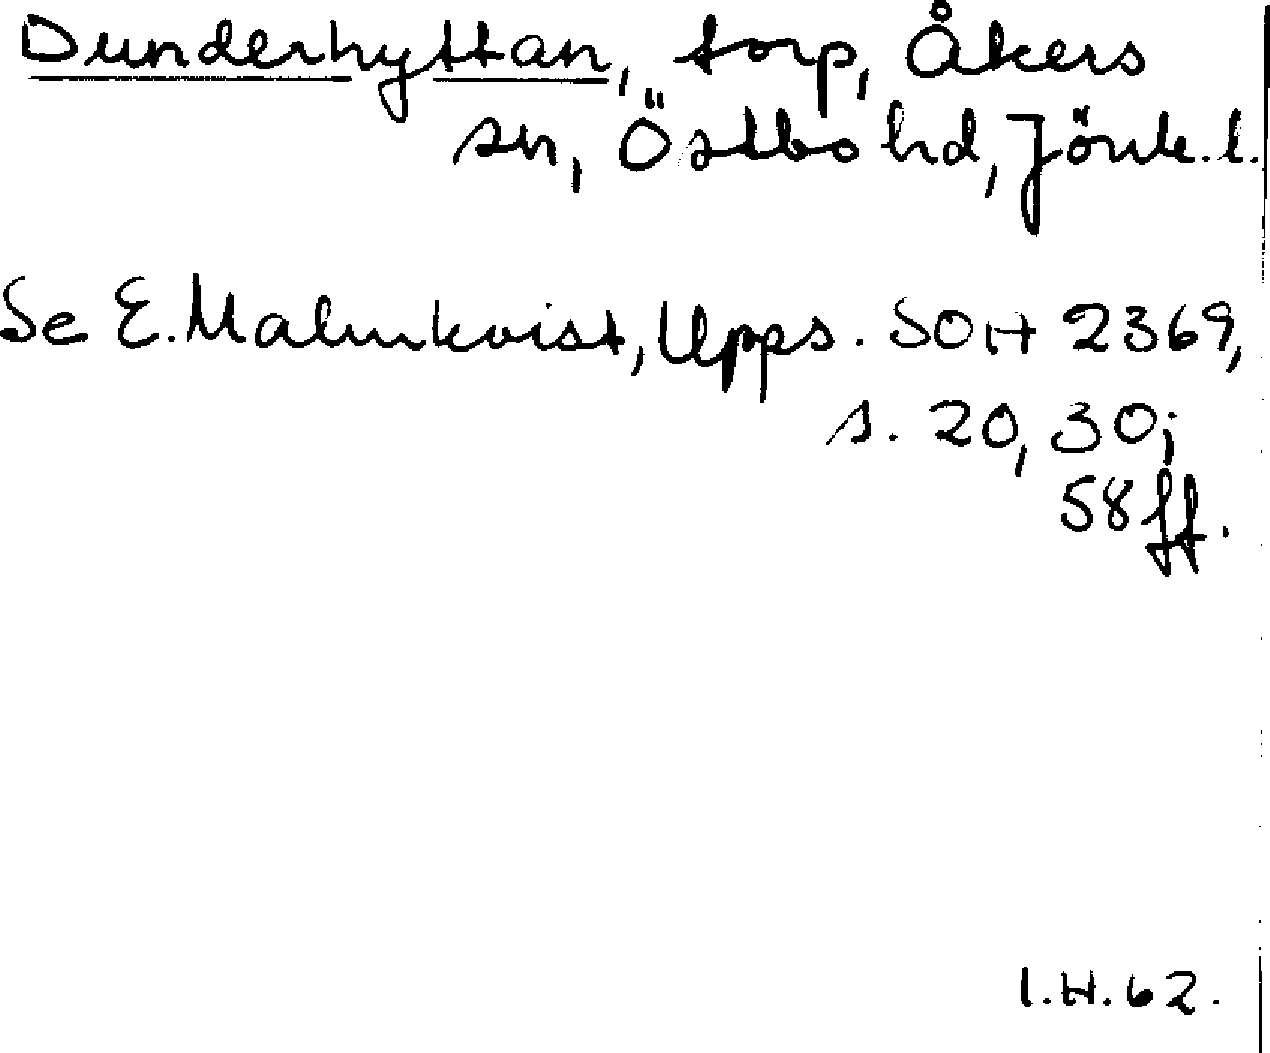 Dunderhyttan, torp, Åkers
sn, Östbo hd, Jönk. l.
Se E. Malmkvist, Upps. SOH 2369,
s. 20, 30;
58 ff.
I.H. 62.